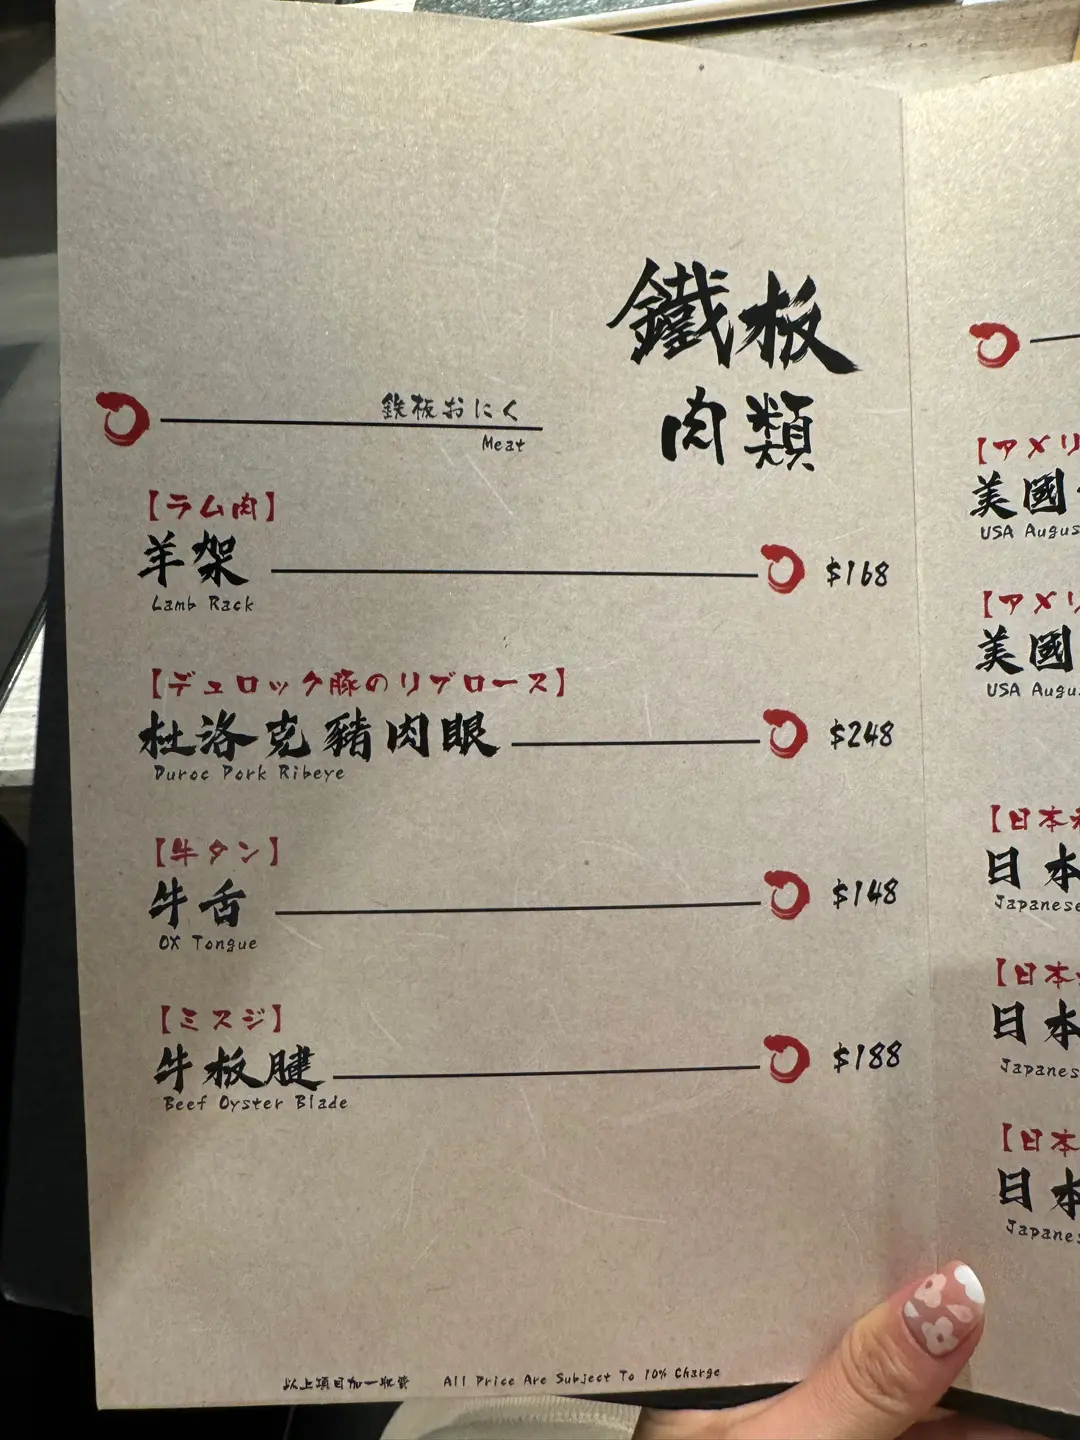 鐵板
肉類
鉄板おにく
Meat
【ラム肉】
羊架
$168
Lamb Rack
【デュロック豚のリブロース】
杜洛克豬肉眼
$248
Duroc Pork Ribeye
【牛タン】
牛舌
$148
OX Tongue
【ミスジ】
牛板腱
$188
Beef Oyster Blade
以上項目加一收費 All Price Are Subject To 10% Charge
【アメリ
美國
USA Augus
【アメリ
美國
USA Augu
【日本
日本
Japanese
【日本
日本
Japanes
【日本
日本
Japanes